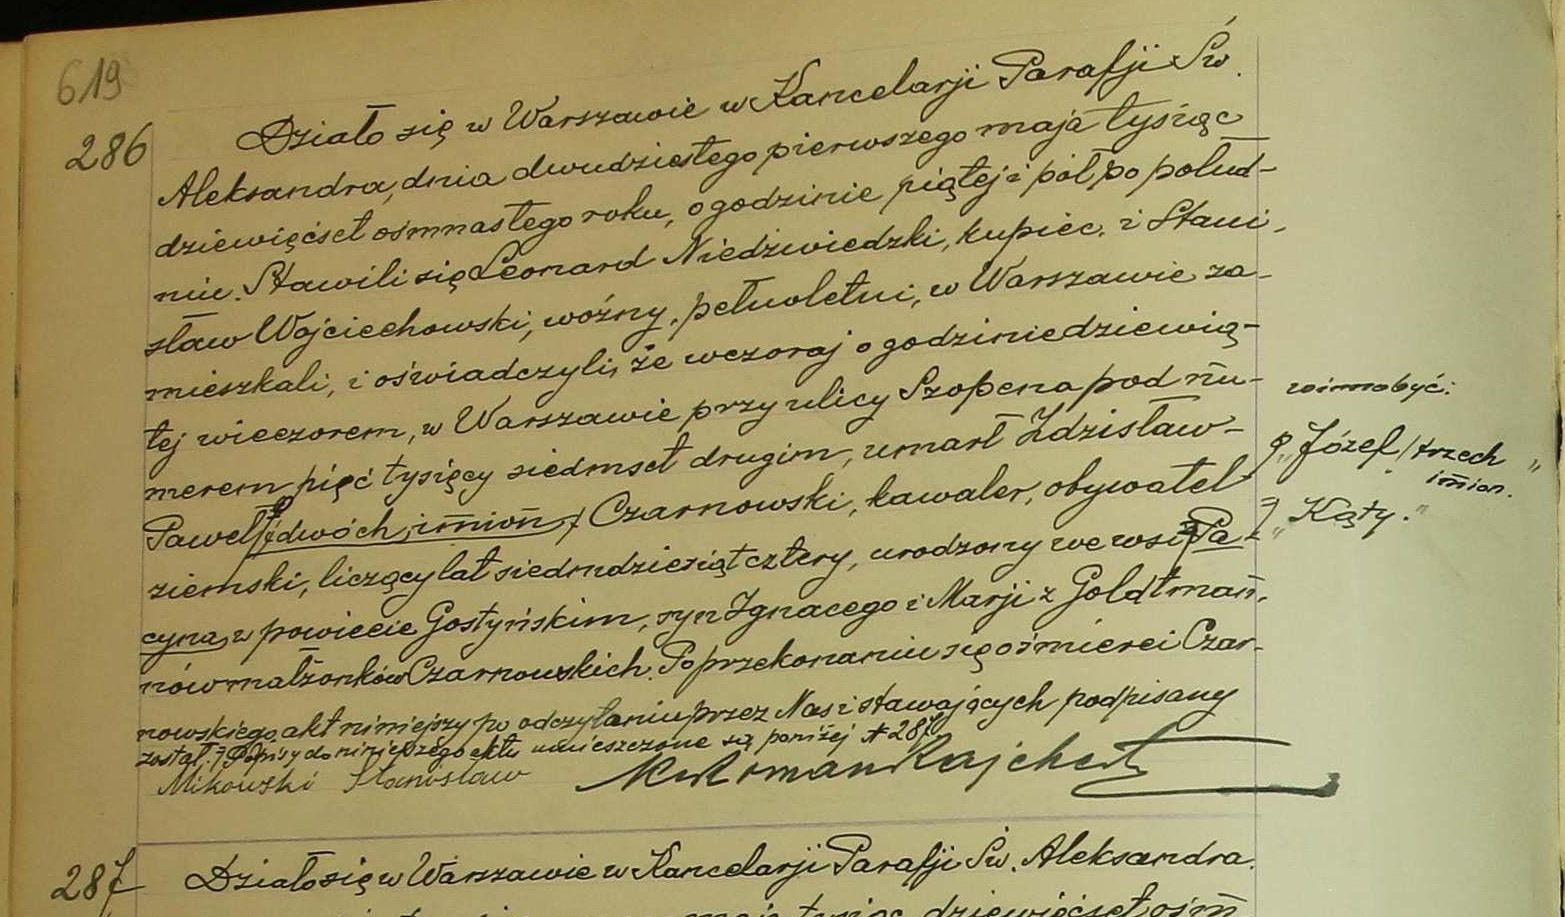 619
286
Działo się w Warszawie w Kancelarji Parafji Św.
Aleksandra, dnia dwudziestego pierwszego maja tysiąc
dziewięćset ośmnastego roku, o godzinie piątej i pół po połud-
niu. Stawili się Leonard Niedźwiedzki, kupiec, i Stani-
sław Wojciechowski, woźny, pełnoletni, w Warszawie za-
mieszkali, i oświadczyli, że wczoraj o godzinie dziewią-
tej wieczorem, w Warszawie przy ulicy Szopena pod nu-
merem pięć tysięcy siedmset drugim, umarł Zdzisław-
Paweł /dwóch imion/ Czarnowski, kawaler, obywatel
ziemski, liczący lat siedmdziesiąt cztery, urodzony we wsi Pa-
cyna, w powiecie Gostyńskim, syn Ignacego i Marji z Goldtman-
nów małżonków Czarnowskich. Po przekonaniu się o śmierci Czar-
nowskiego, akt niniejszy po odczytaniu przez Nas i stawających podpisany
został. Dopisy do niniejszego aktu umieszczone są poniżej № 287
Mikowski Stanosław
X Roman Rajchert
winno być:
"Józef /trzech
imion. "
"Kąty."
287
Działo się w Warszawie w Kancelarji Parafji Św. Aleksandra.
maja tysiąc dziewięćset ośm